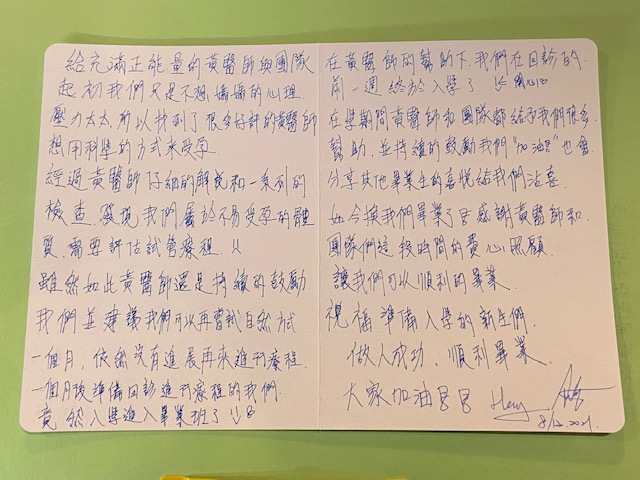 給充滿正能量的黃醫師與團隊
起初我們只是不想媽媽的心理
壓力太大,所以找到了很多好評的黃醫師
想用科學的方式來受孕.
經過黃醫師仔細的解說和一系列的
檢查.發現我們屬於不易受孕的體
質.需要評估試管療程.
雖然如此黃醫師還是持續的鼓勵
我們並建議我們可以再嘗試自然試
一個月,依然沒有進展再來進行療程.
一個月後準備回診進行療程的我們.
竟然入學進入畢業班了
在黃醫師的幫助下.我們在回診的
前一週終於入學了.開心
在學期間黃醫師和團隊都給予我們很多
幫助.並持續的鼓勵我們"加油"也會
分享其他畢業生的喜悅給我們沾喜.
如今換我們畢業了 感謝黃醫師和
團隊們這段時間的費心照顧.
讓我們可以順利的畢業.
祝福準備入學的新生們.
做人成功.順利畢業.
大家加油
8/12.2021.